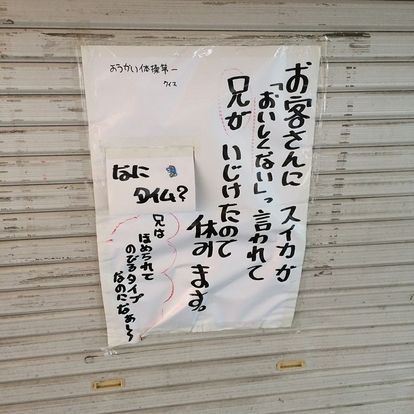 お客さんに スイカが
「おいしくない」っ言われて
兄が いじけたので
休みます。
ようかい体操第一
クイズ
なに
タイム?
兄は
ほめられて
のびるタイプ
なのになぁ〜